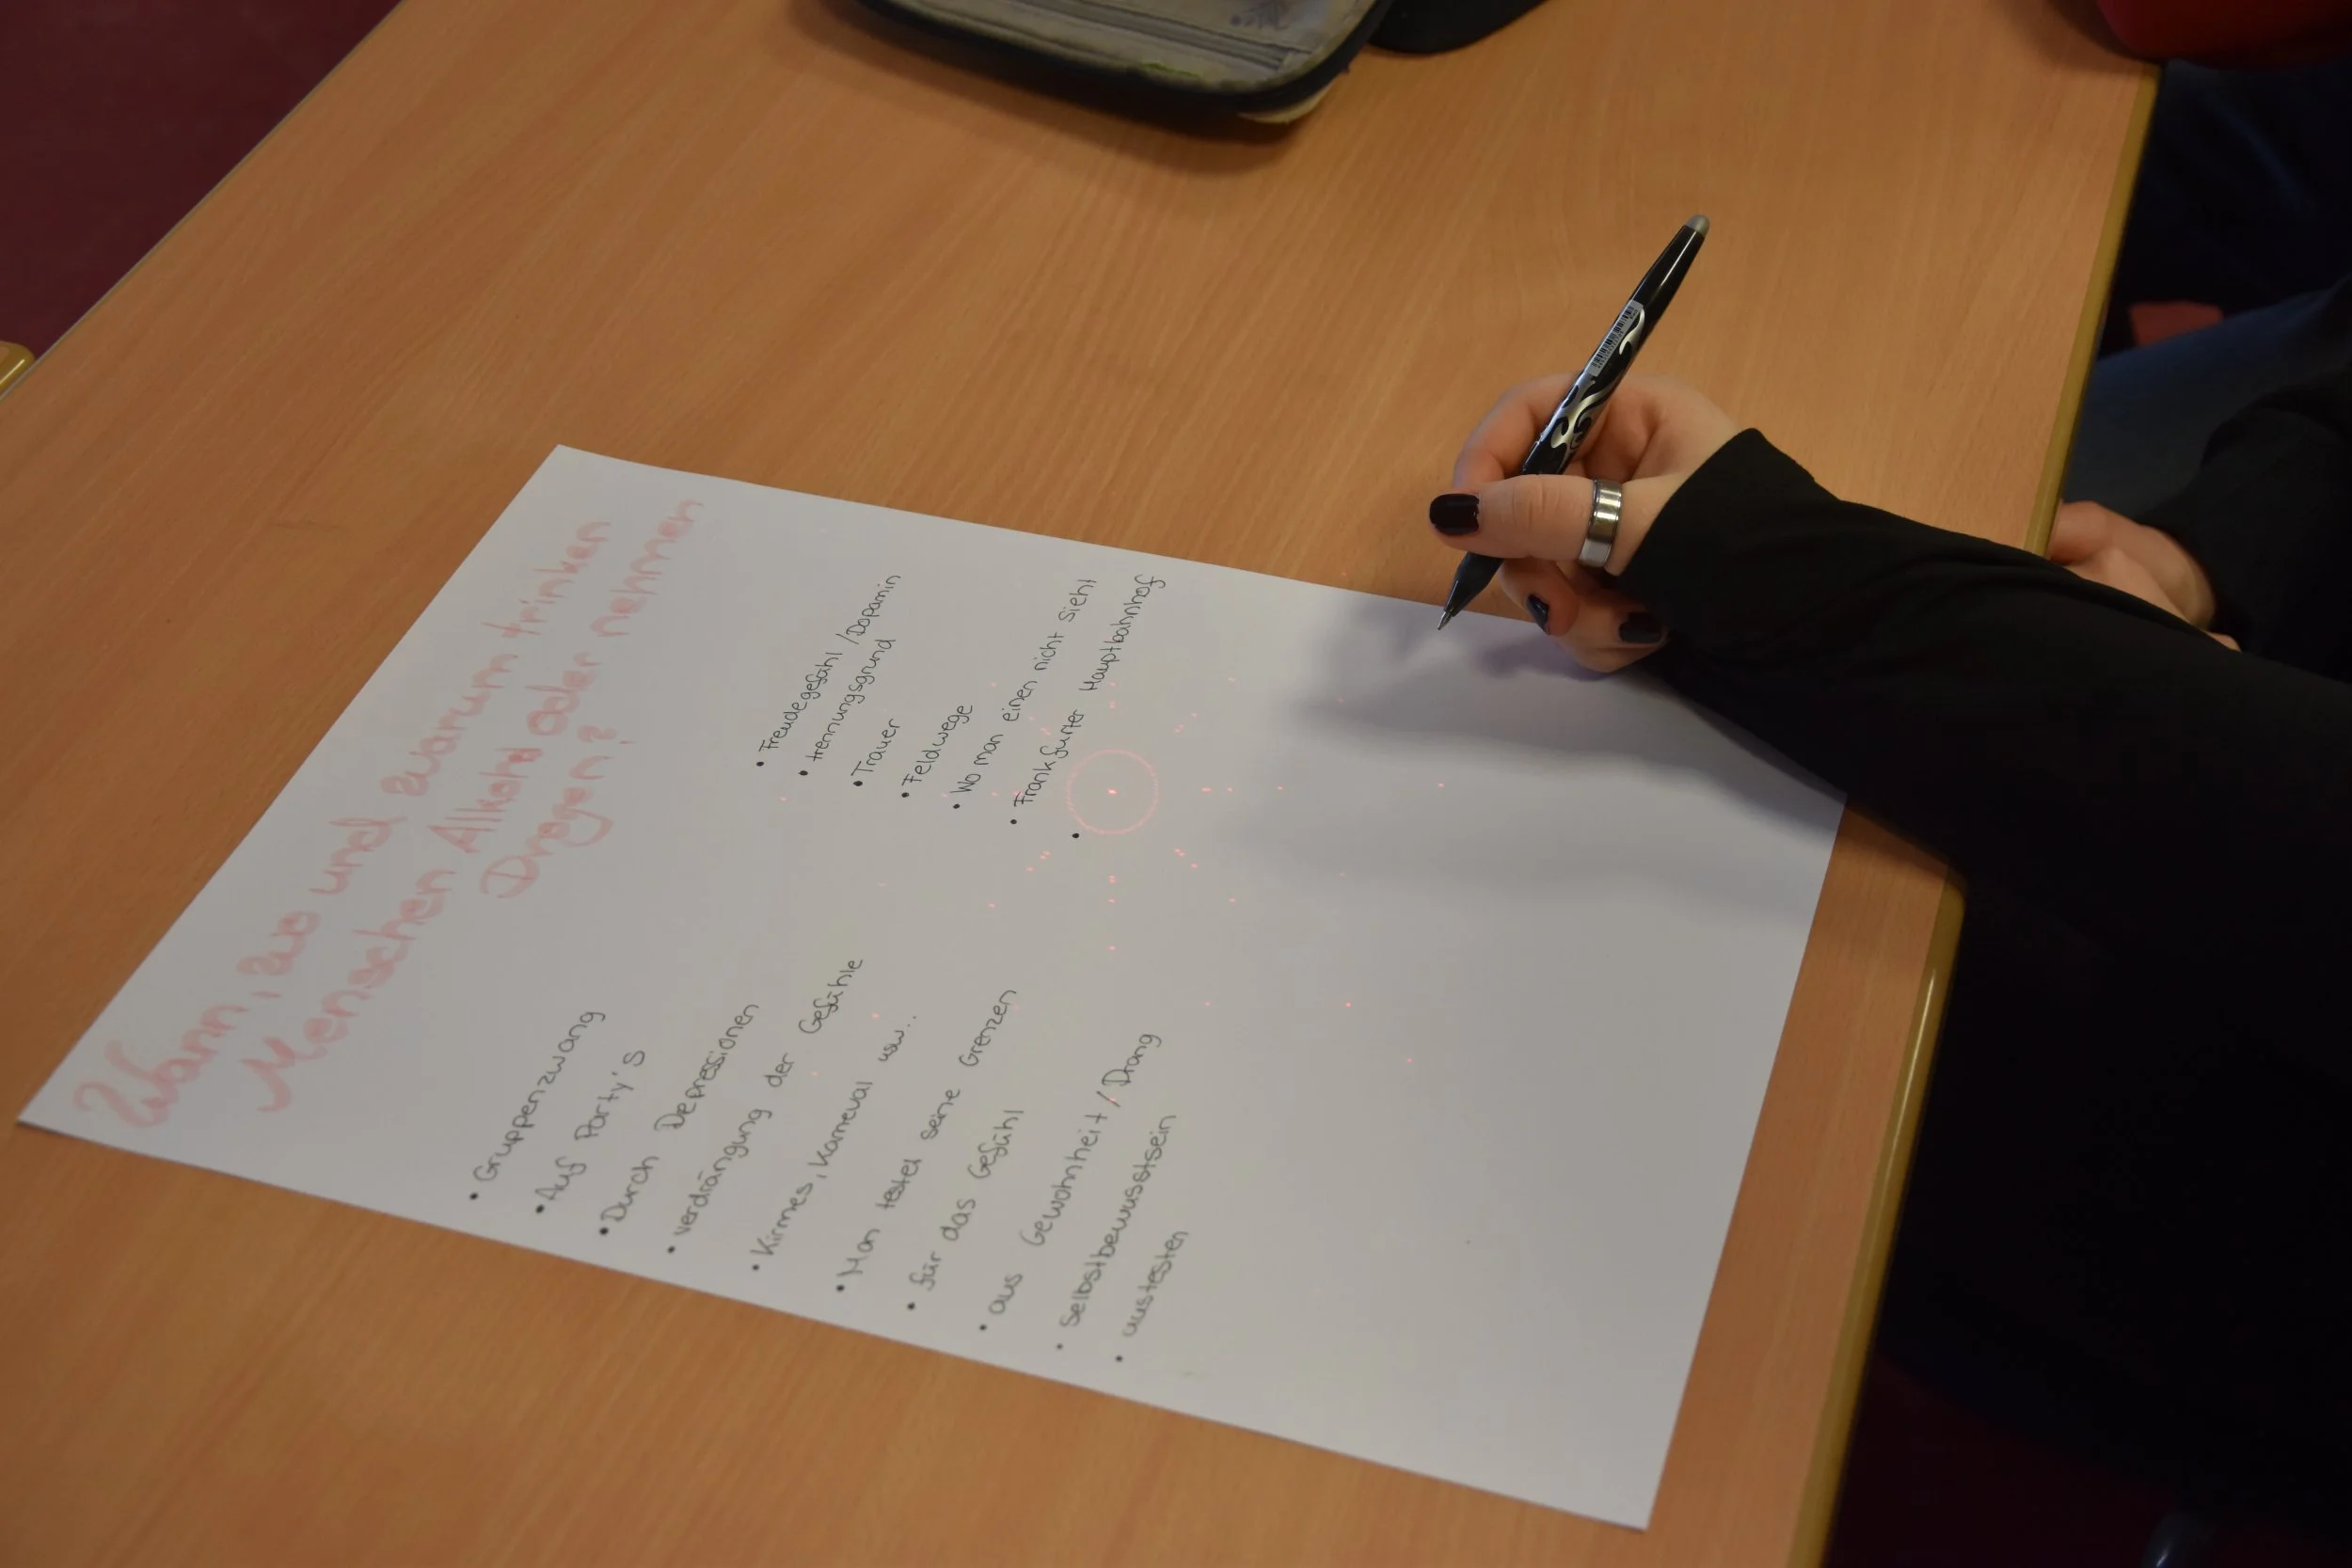 Wann, wo und warum trinken
Menschen Alkohol oder nehmen
Drogen?
• Gruppenzwang
• Auf Party's
• Durch Depressionen
• verdrängung der Gefühle
• Kirmes, Karneval usw..
• Man testet seine Grenzen
• für das Gefühl
• aus Gewohnheit / Drang
• selbstbewusstsein
• austesten
• Freudegefühl / Dopamin
• trennungsgrund
• Trauer
• Feldwege
• Wo man einen nicht sieht
• Frankfurter Hauptbahnhof
•